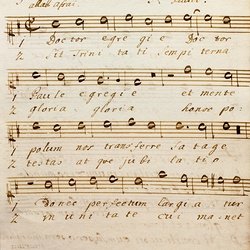 1 Doctor egregie Doctor
2 Sit Trinitati sempiterna
1 Paule egregie et mente
2 gloria gloria honor po-
1 polum nos transferre satage
2 testas atque jubilatio
1 Donec perfectum Largiatur
2 in unitate cui manet